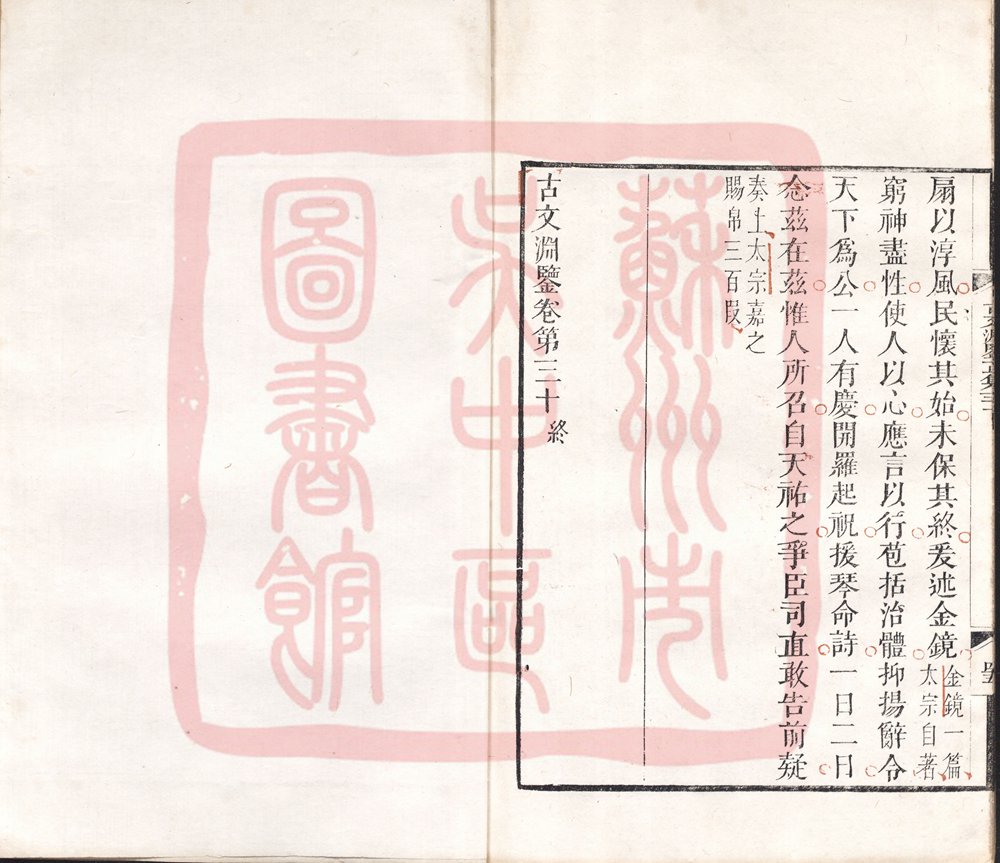 扇以淳風民懷其始未保其終爰述金鏡金鏡一篇太宗自著
窮神盡性使人以心應言以行苞括治體抑揚辭令
天下爲公一人有慶開羅起祝援琴命詩一日二日
念茲在茲惟人所召自天祐之爭臣司直敢告前疑
奏上太宗嘉之
賜帛三百段
古文淵鑒卷第三十終
蘇州市
吳中區
圖書館